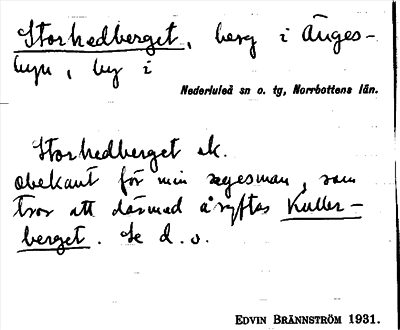 Storhedberget, berg i Änges-
byn, by i
Nederluleå sn o. tg, Norrbottens län.
Storhedberget ek.
obekant för min sagesman, som
tror att därmed åsyftas Kuller-
berget. Se d. o.
EDVIN BRÄNNSTRÖM 1931.